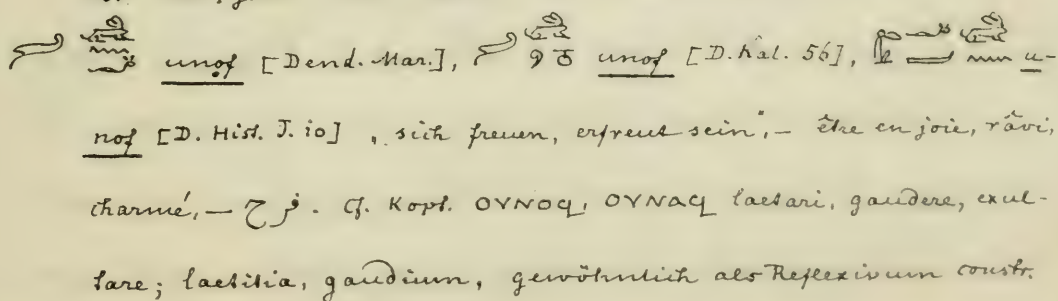 unof [Dend. Mar.], unof [D. Kal. 56], u-
nof [D. Hist. J. 10] „sich freuen, erfreut sein", – être en joie, râvi,
charmé, – فرح. Cf. Kopt. ΟΥΝΟϤ, ΟΥΝΑϤ laetari, gaudere, exul-
tare; laetitia, gaudium, gewöhnlich als Reflexivum constr.